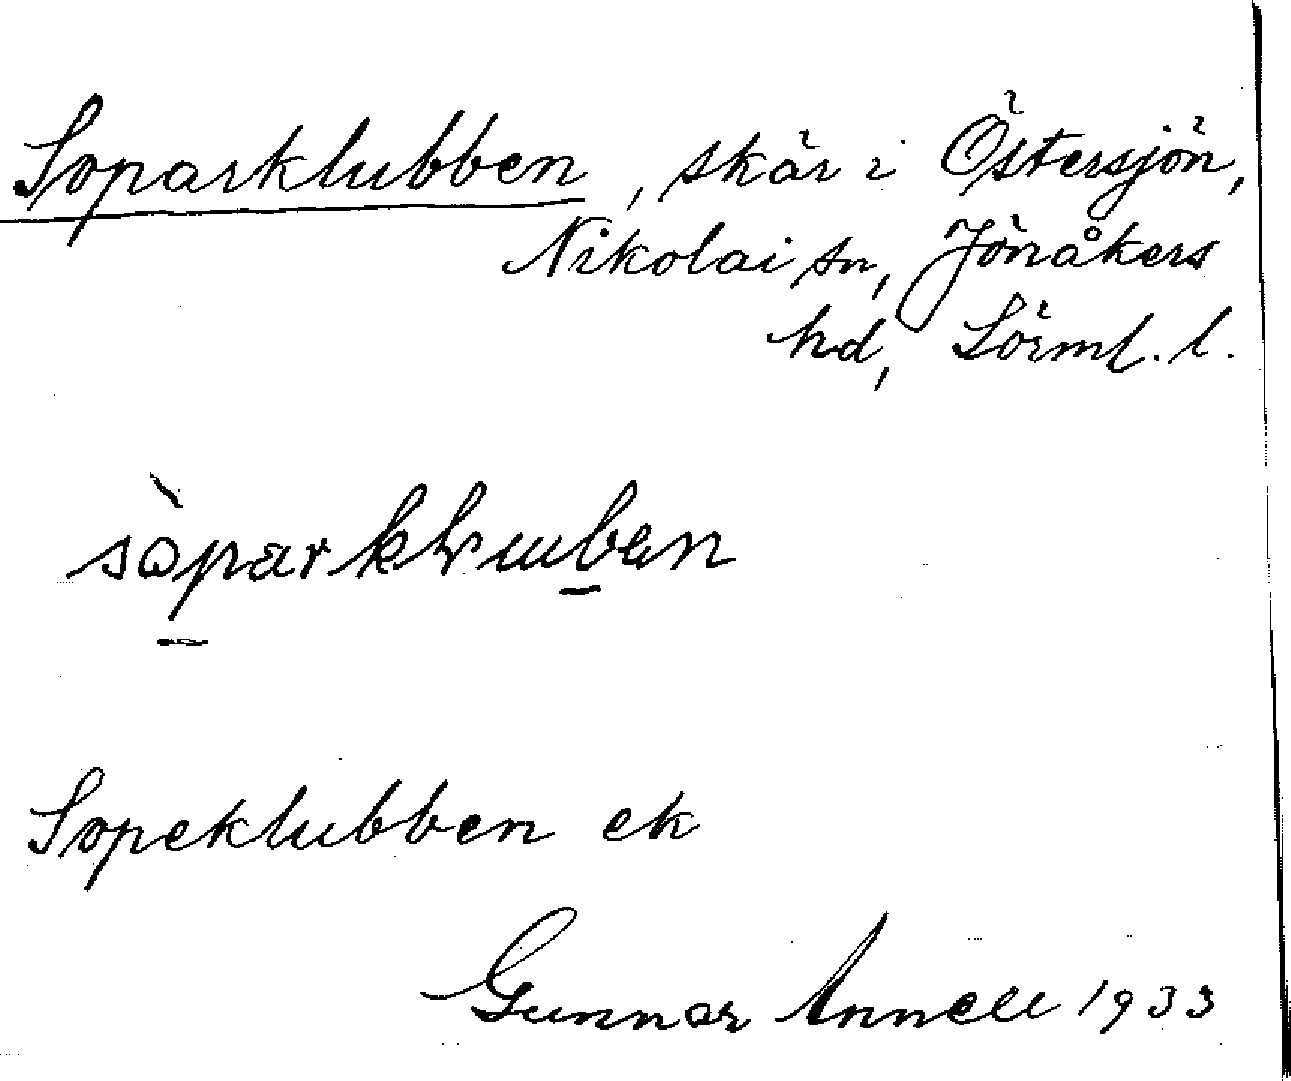 Soparklubben, skär i Östersjön,
Nikolai sn, Jönåkers
hd, Sörml. l.
sòparkluuben
Sopeklubben ek
Gunnar Annell 1933